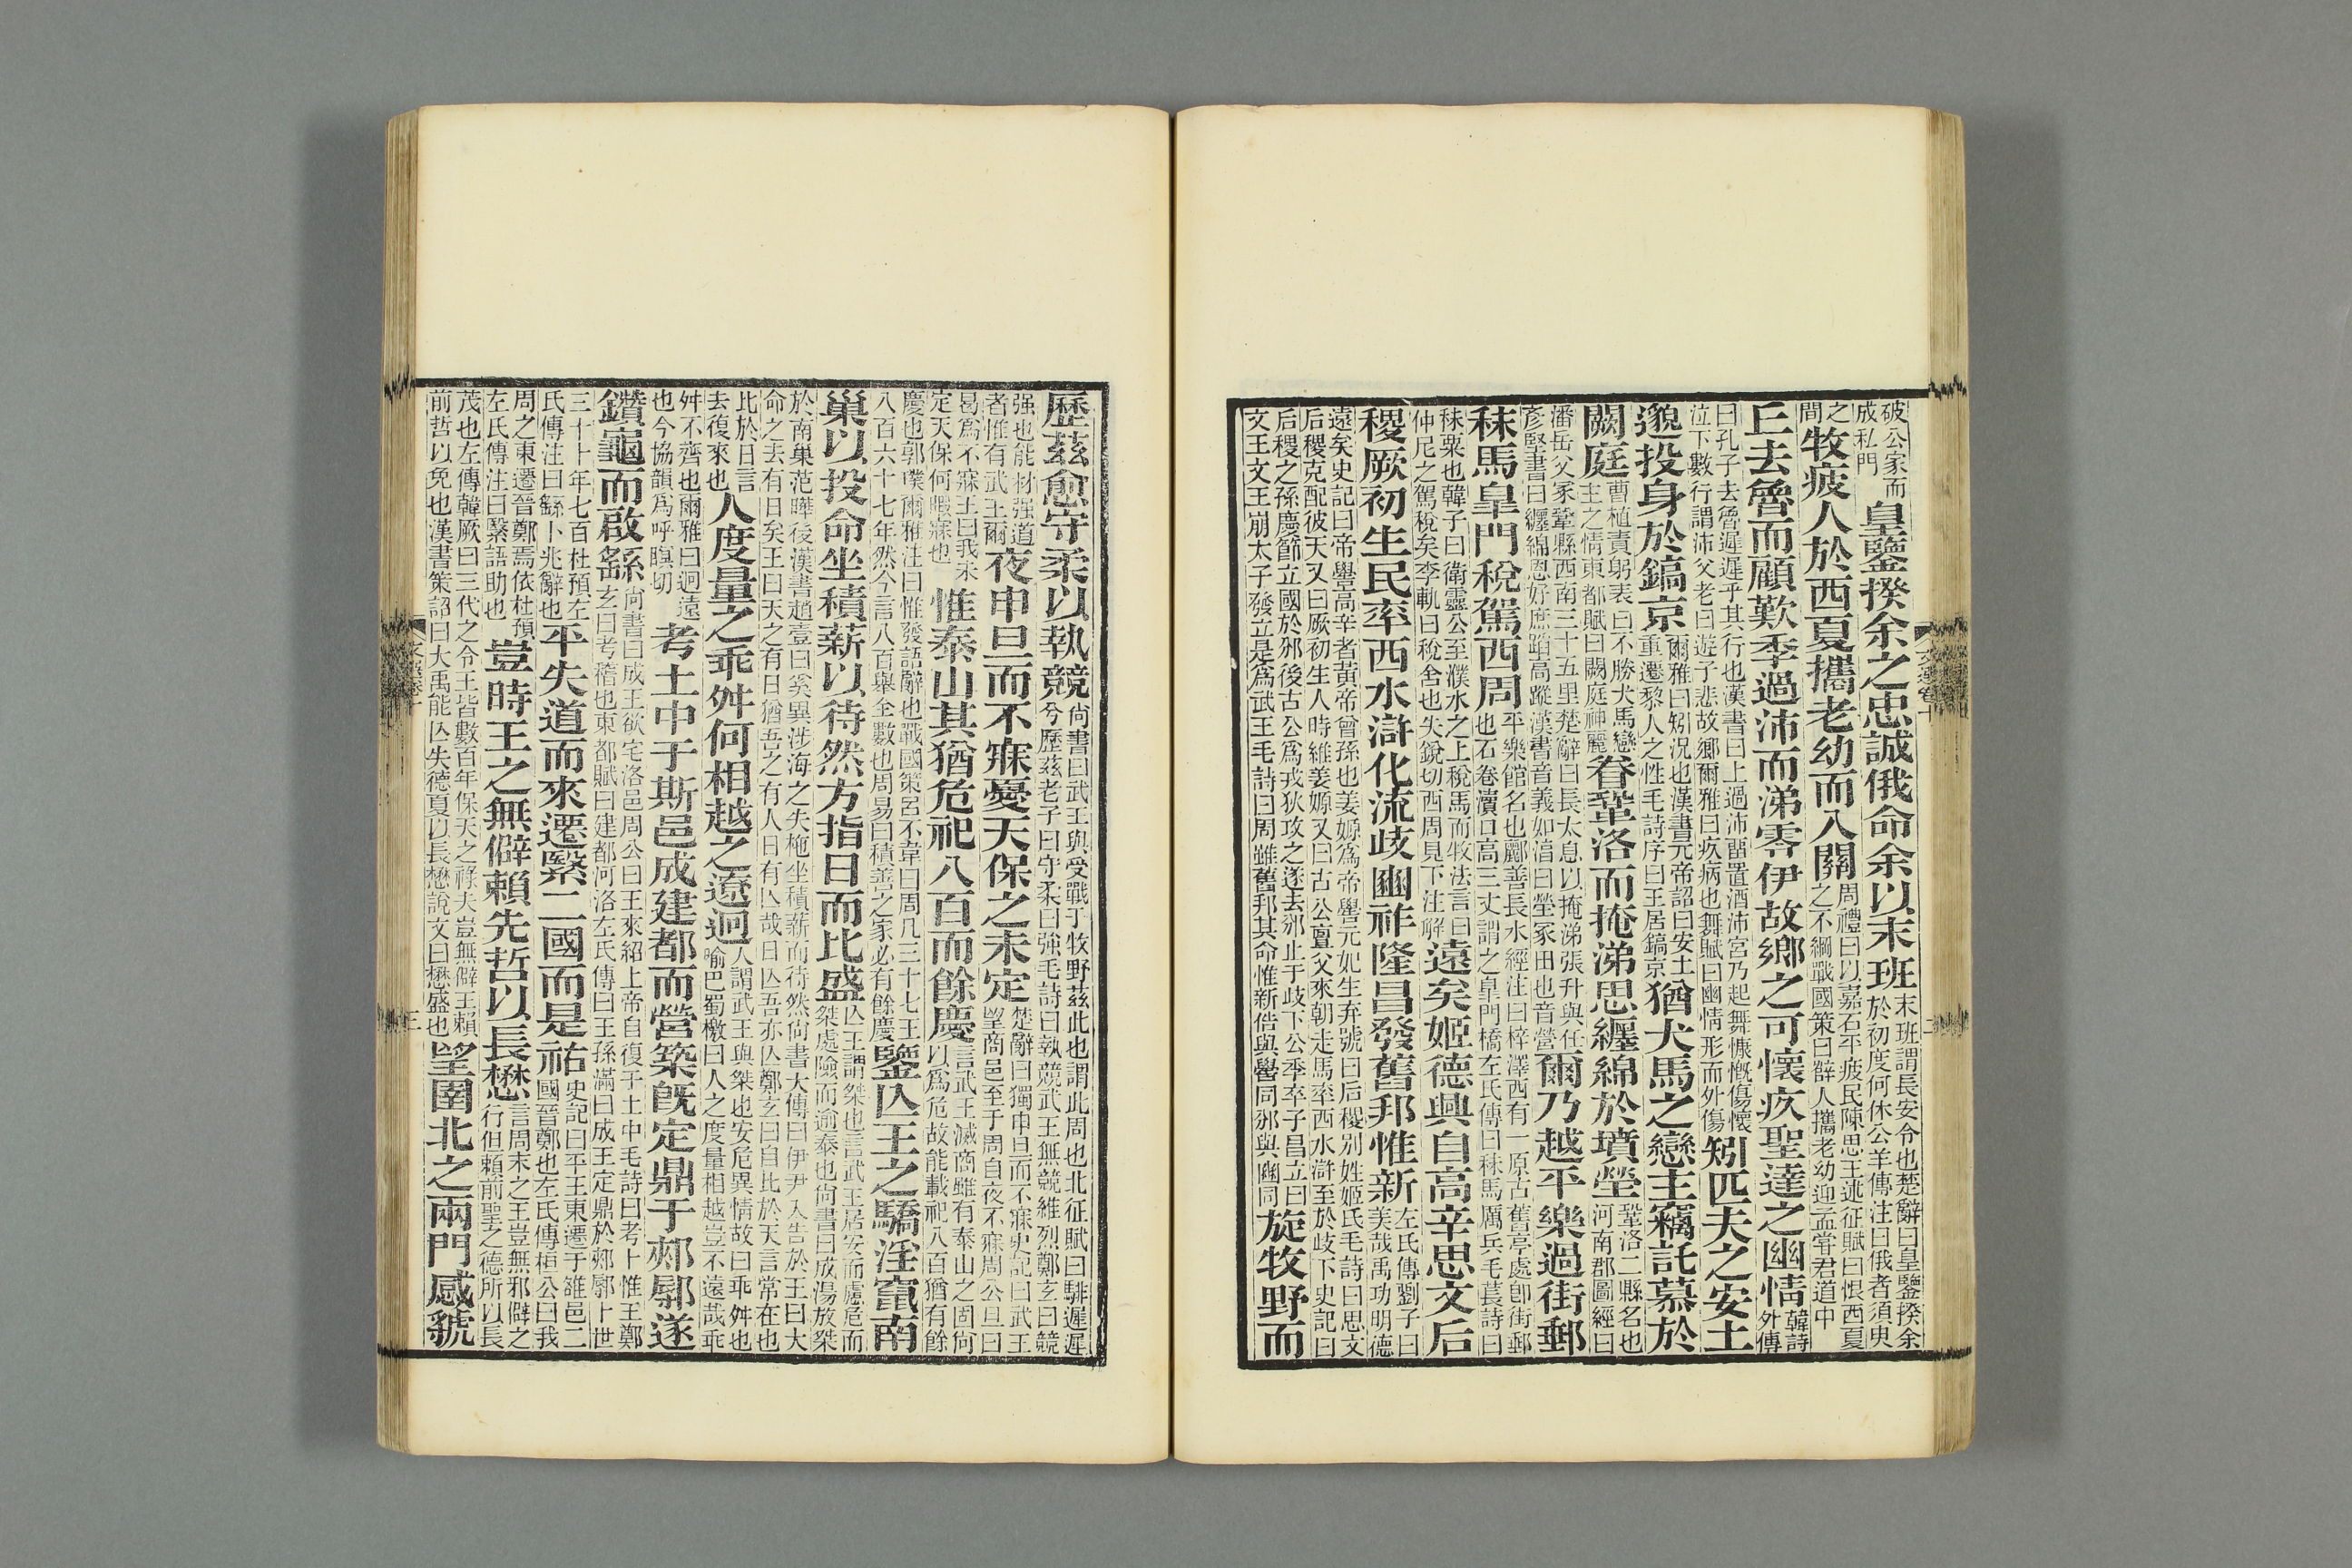 破公家而
成私門
皇鑒揆余之忠誠俄命余以末班
末班謂長安令也楚辭曰皇鑒揆余
於初度何休公羊傳注曰俄者須臾
之
間
牧疲人於西夏攜老幼而入關
周禮曰以嘉石平疲民陳思王述征賦曰恨西夏
之不綱戰國策曰薛人攜老幼迎孟嘗君道中
丘去魯而顧歎季過沛而涕零伊故鄉之可懷疚聖達之幽情
韓詩
外傳
曰孔子去魯遲遲乎其行也漢書曰上過沛畱置酒沛宮乃起舞慷慨傷懷
泣下數行謂沛父老曰遊子悲故鄉爾雅曰疚病也舞賦曰幽情形而外傷
矧匹夫之安土
邈投身於鎬京
爾雅曰矧況也漢書元帝詔曰安土
重遷黎人之性毛詩序曰王居鎬京
猶犬馬之戀主竊託慕於
闕庭
曹植責躬表曰不勝犬馬戀
主之情東都賦曰闕庭神麗
眷鞏洛而掩涕思纏綿於墳塋
鞏洛二縣名也
河南郡圖經曰
潘岳父冢鞏縣西南三十五里楚辭曰長太息以掩涕張升與任
彥堅書曰纏綿恩好庶蹈高蹤漢書音義如淳曰塋冢田也音營
爾乃越平樂過街郵
秣馬皇門稅駕西周
平樂館名也酈善長水經注曰梓澤西有一原古舊亭處卽街郵
也石卷瀆口高三丈謂之皐門橋左氏傳曰秣馬厲兵毛萇詩曰
秣粟也韓子曰衛靈公至濮水之上稅馬而牧法言曰
仲尼之駕稅矣李軌曰稅舍也失銳切西周見下注解
遠矣姬德興自高辛思文后
稷厥初生民率西水滸化流歧豳祚隆昌發舊邦惟新
左氏傳劉子曰
美哉禹功明德
遠矣史記曰帝嚳高辛者黃帝曾孫也姜嫄爲帝嚳元妃生弃號曰后稷別姓姬氏毛詩曰思文
后稷克配彼天又曰厥初生人時維姜嫄又曰古公亶父來朝走馬率西水滸至於歧下史記曰
后稷之孫慶節立國於邠後古公爲戎狄攻之遂去邠止于歧下公季卒子昌立曰
文王文王崩太子發立是爲武王毛詩曰周雖舊邦其命惟新俈與嚳同邠與豳同
旋牧野而
歷茲愈守柔以執競
尚書曰武王與受戰于牧野茲此也謂此周也北征賦曰騑遲遲
兮歷茲老子曰守柔曰強毛詩曰執競武王無競維烈鄭玄曰競
强也能材强道
者惟有武王爾
夜申旦而不寐憂天保之未定
楚辭曰獨申旦而不寐史記曰武王
望商邑至于周自夜不寐周公旦曰
曷爲不寐王曰我未
定天保何暇寐也
惟泰山其猶危祀八百而餘慶
言武王滅商雖有泰山之固尚
以爲危故能載祀八百猶有餘
慶也郭璞爾雅注曰惟發語辭也戰國策呂不韋曰周凡三十七王
八百六十七年然今言八百舉全數也周易曰積善之家必有餘慶
鑒亾王之驕淫竄南
巢以投命坐積薪以待然方指日而比盛
亾王謂桀也言武王居安而慮危而
桀處險而逾泰也尚書曰成湯放桀
於南巢范曄後漢書趙壹曰奚異涉海之失柂坐積薪而待然尚書大傳曰伊尹入告於王曰大
命之去有日矣王曰天之有日猶吾之有人日有亾哉日亾吾亦亾鄭玄曰自比於天言常在也
比於日言
去復來也
人度量之乖舛何相越之遼迥
人謂武王與桀也安危異情故曰乖舛也
喻巴蜀檄曰人之度量相越豈不遠哉乖
舛不齊也爾雅曰迥遠
也今協韻爲呼瞑切
考土中于斯邑成建都而營築旣定鼎于郟鄏遂
鑽龜而啟繇
尚書曰成王欲宅洛邑周公曰王來紹上帝自復于土中毛詩曰考卜惟王鄭
玄曰考稽也東都賦曰建都河洛左氏傳曰王孫滿曰成王定鼎於郟鄏卜世
三十卜年七百杜預左
氏傳注曰繇卜兆辭也
平失道而來遷繄二國而是祐
史記曰平王東遷于雒邑二
國晉鄭也左氏傳桓公曰我
周之東遷晉鄭焉依杜預
左氏傳注曰繄語助也
豈時王之無僻賴先哲以長懋
言周末之王豈無邪僻之
行但賴前聖之德所以長
茂也左傳韓厥曰三代之令王皆數百年保天之祿夫豈無僻王賴
前哲以免也漢書策詔曰大禹能亾失德夏以長懋說文曰懋盛也
望圉北之兩門感虢